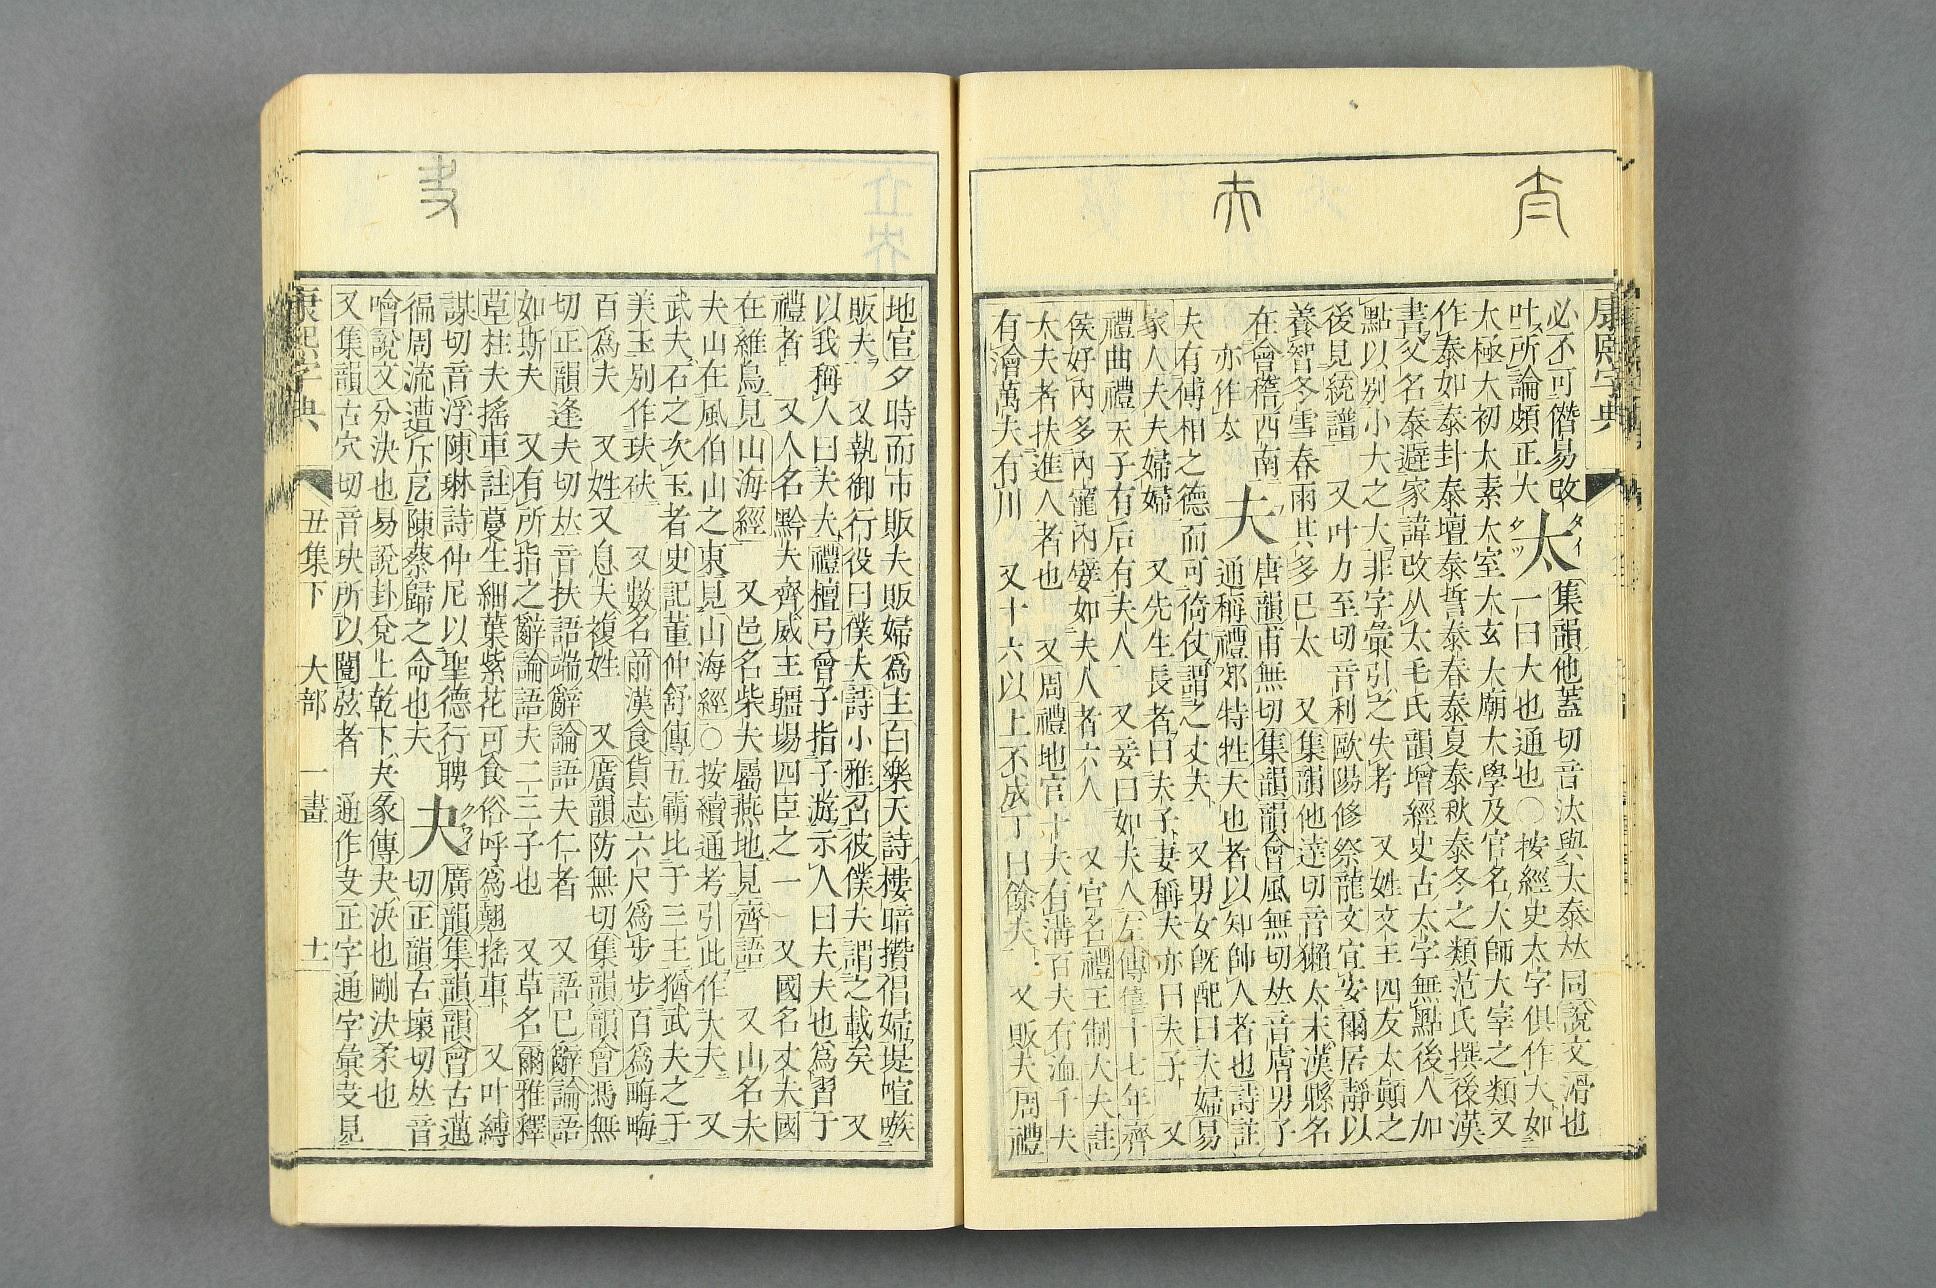 康熙字典
必不可僭易攺 太 タイ タッ 集韻他蓋切音汰與大泰𠀤同說文滑也
叶所論頗正大 一曰大也通也○按經史太字俱作大如
大極大初大素大室大玄大廟大學及官名大師大宰之類又
作泰如泰卦泰壇泰誓泰春泰夏泰秋泰冬之類范氏撰後漢
書父名泰避家諱改从太毛氏韻增經史古太字無點後人加
點以別小大之大非字彙引之失考 又姓文王四友太顚之
後見統譜 又叶力至切音利歐陽修祭龍文宜安爾居靜以
養智冬雪春雨其多已太 又集韻他達切音獺太末漢縣名
在會稽西南 夫 唐韻甫無切集韻韻會風無切𠀤音膚男子
亦作夳 通稱禮郊特牲夫也者以知帥人者也詩註
夫有傅相之德而可倚仗謂之丈夫 又男女旣配曰夫婦易
家人夫夫婦婦 又先生長者曰夫子妻稱夫亦曰夫子 又
禮曲禮天子有后有夫人 又妾曰如夫人左傳僖十七年齊
侯好內多內寵內嬖如夫人者六人 又官名禮王制大夫註
大夫者扶進人者也 又周禮地官十夫有溝百夫有洫千夫
有澮萬夫有川 又十六以上不成丁曰餘夫 又販夫周禮
地官夕時而市販夫販婦爲主白樂天詩樓暗攢倡婦堤喧簇
販夫 又執御行役曰僕夫詩小雅召彼僕夫謂之載矣 又
以我稱人曰夫夫禮檀弓曾子指子游示人曰夫夫也爲習于
禮者 又人名黔夫齊威王疆場四臣之一 又國名丈夫國
在維鳥見山海經 又邑名柴夫屬燕地見齊語 又山名夫
夫山在風伯山之東見山海經○按續通考引此作大夫 又
武夫石之次玉者史記董仲舒傳五霸比于三王猶武夫之于
美玉別作玞砆 又數名前漢食貨志六尺爲步步百爲畮畮
百爲夫 又姓又息夫複姓 又廣韻防無切集韻韻會馮無
切正韻逢夫切𠀤音扶語端辭論語夫仁者 又語已辭論語
如斯夫 又有所指之辭論語夫二三子也 又草名爾雅釋
草柱夫搖車註蔓生細葉紫花可食俗呼爲翹搖車 又叶縛
謀切音浮陳琳詩仲尼以聖德行聘 夬 クワイ 廣韻集韻韻會古邁
徧周流遭斥戹陳蔡歸之命也夫 切正韻古壞切𠀤音
噲說文分決也易說卦兌上乾下夬彖傳夬決也剛決柔也
又集韻古穴切音玦所以闓弦者 通作叏正字通字彙叏見
康熙字典 丑集下 大部 一畫 十一